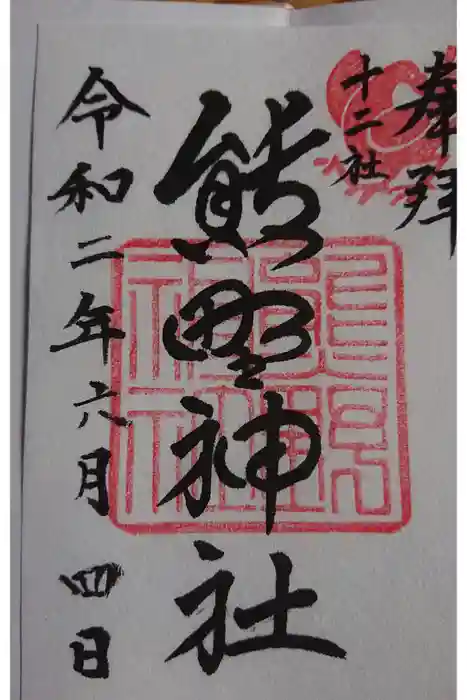 奉拝
十二社
熊野神社
令和二年六月四日